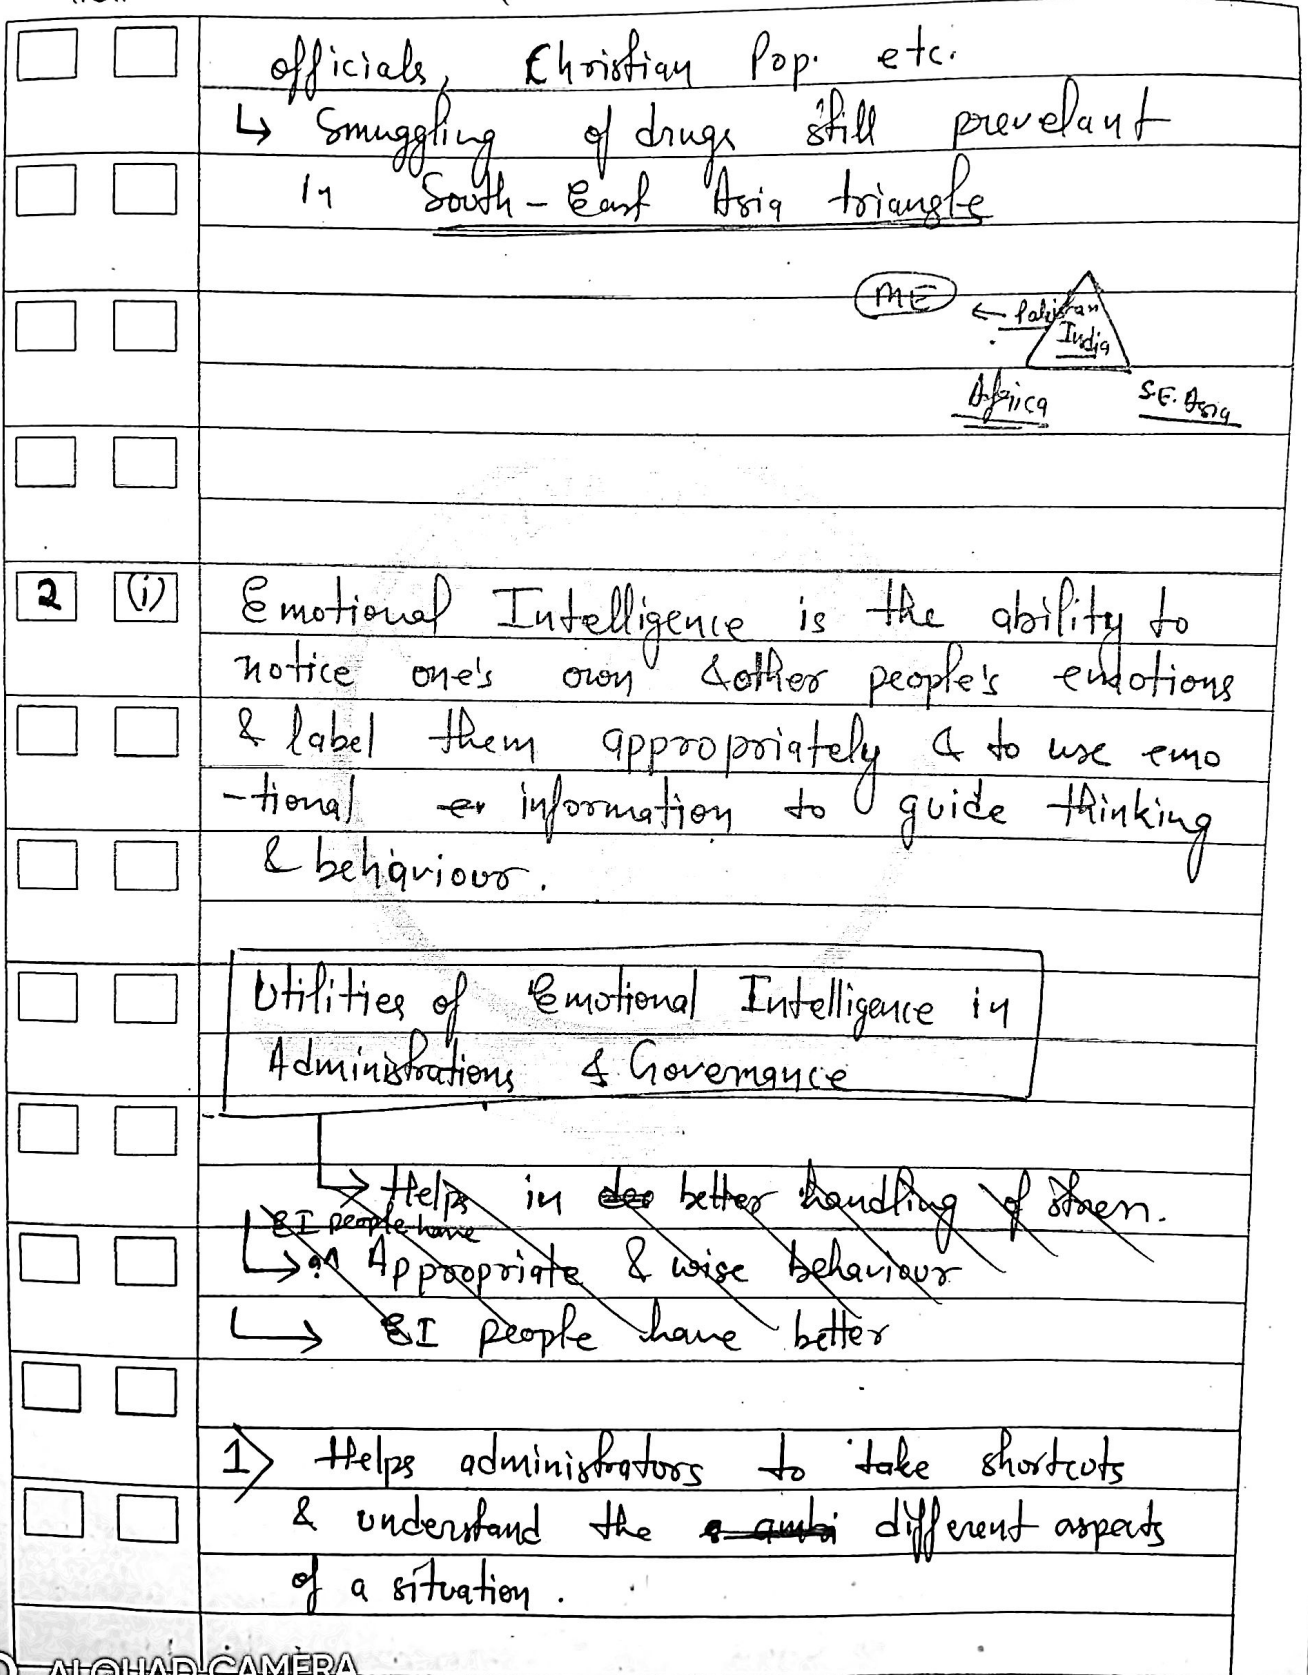 officials, Christian Pop. etc.
↳ Smuggling of drugs still prevelant
in South-East Asia triangle
ME ← Pakistan
India
Africa S.E. Asia
2 (i) Emotional Intelligence is the ability to
notice one's own & other people's emotions
& label them appropriately & to use emo
-tional er information to guide thinking
& behaviour.
Utilities of Emotional Intelligence in
Administrations & Governance
→ Helps in better handling of stress.
EI people have
→ Appropriate & wise behaviour
→ EI people have better
1> Helps administrators to take shortcuts
& understand the ambi different aspects
of a situation.
ALQUAD CAMERA